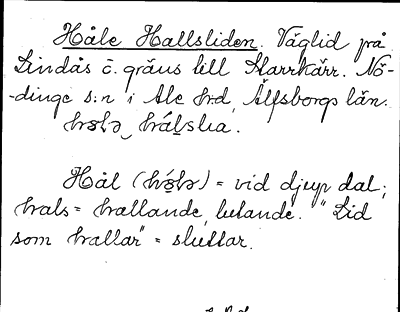 Håle Hallsliden. Väglid på
Lindås ö. gräns till Starrkärr. Nö-
-dinge s:n i Ale hrd, Älfsborgs län.
Hål = vid djup dal;
hals = hallande, lutande. "Lid
som hallar" = sluttar.